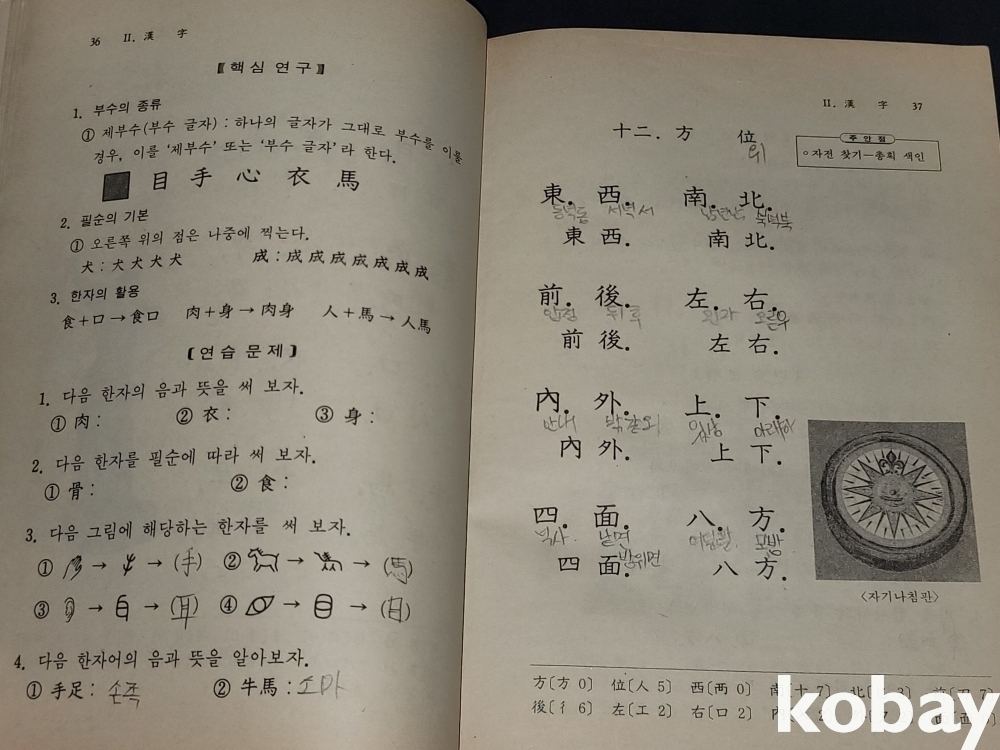 36 II. 漢 字
【핵심 연구】
1. 부수의 종류
① 제부수(부수 글자) : 하나의 글자가 그대로 부수를 이룰
경우, 이를 '제부수' 또는 '부수 글자'라 한다.
目 手 心 衣 馬
2. 필순의 기본
① 오른쪽 위의 점은 나중에 찍는다.
犬 : 犬 犬 犬 犬 成 : 成 成 成 成 成 成 成
3. 한자의 활용
食 + 口 → 食口 肉 + 身 → 肉身 人 + 馬 → 人馬
(연습 문제)
1. 다음 한자의 음과 뜻을 써 보자.
① 肉 : ② 衣 : ③ 身 :
2. 다음 한자를 필순에 따라 써 보자.
① 骨 : ② 食 :
3. 다음 그림에 해당하는 한자를 써 보자.
① → → (手) ② → → (馬)
③ → → (耳) ④ → → (目)
4. 다음 한자어의 음과 뜻을 알아보자.
① 手足 : 손족 ② 牛馬 : 소마
II. 漢 字 37
十二. 方 位
위
주안점
○자전 찾기—총획 색인
東. 西. 南. 北.
동녘동 서녘서 남녘남 북녘북
東 西. 南 北.
前. 後. 左. 右.
앞전 뒤후 왼좌 오른우
前 後. 左 右.
內. 外. 上. 下.
안내 밖같외 위상 아래하
內 外. 上 下.
四. 面. 八. 方.
넉사 낯면 여덟팔 모방
四 面. 방위면 八 方.
〈자기나침판〉
方〔方 0〕 位〔人 5〕 西〔襾 0〕 南〔十 7〕 北
後〔彳 6〕 左〔工 2〕 右〔口 2〕
kobay